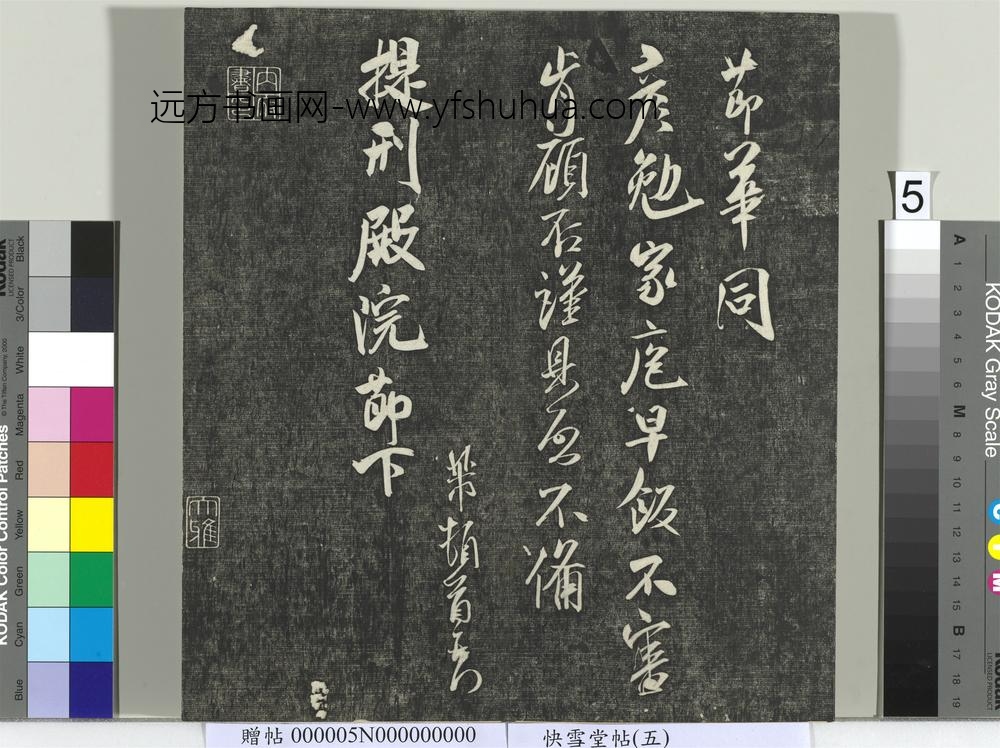 節華同
彥勉家庖早飯不審
肯顧否謹具啓不備
襄頓首
提刑殿院節下
大雅
远方书画网-www.yfshuhua.com
5
KODAK Color Control Patches
© The Tiffen Company, 2000
Kodak
LICENSED PRODUCT
Black
3/Color
White
Magenta
Red
Yellow
Green
Cyan
Blue
KODAK Gray Scale
A 1 2 3 4 5 6 M 8 9 10 11 12 13 14 15 B 17 18 19
C
Y
M
赠帖 000005N000000000
快雪堂帖(五)